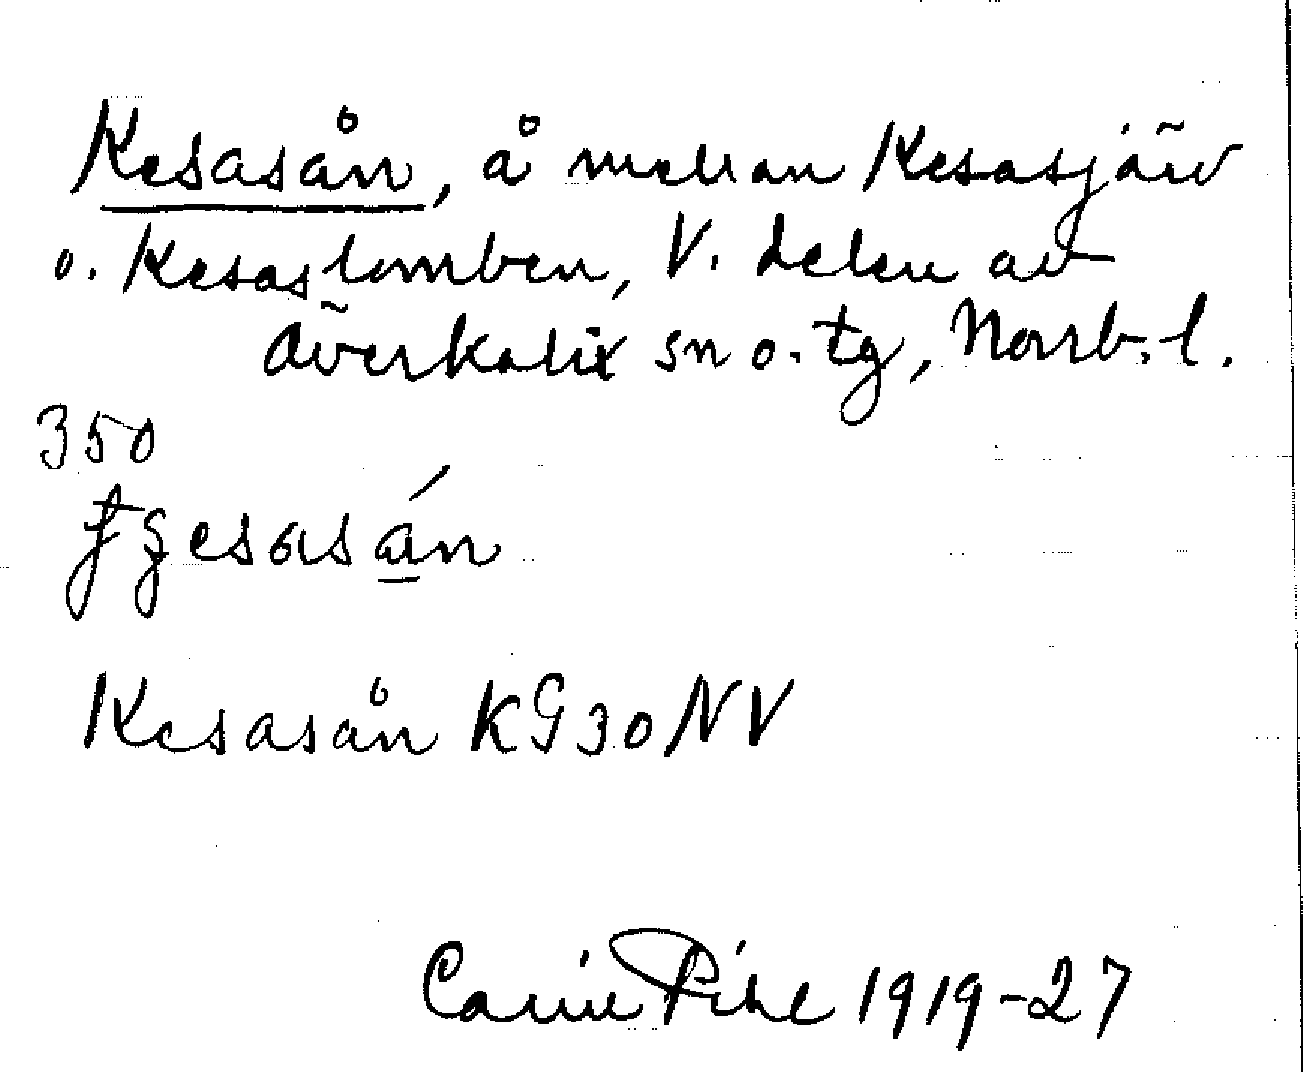 Kesasån, å mellan Kesasjärv
o. Kesaslomben, V. delen av
Överkalix sn o. tg, Norrb. l.
350
Kesasån KG30NV
Carin Pihl 1919-27